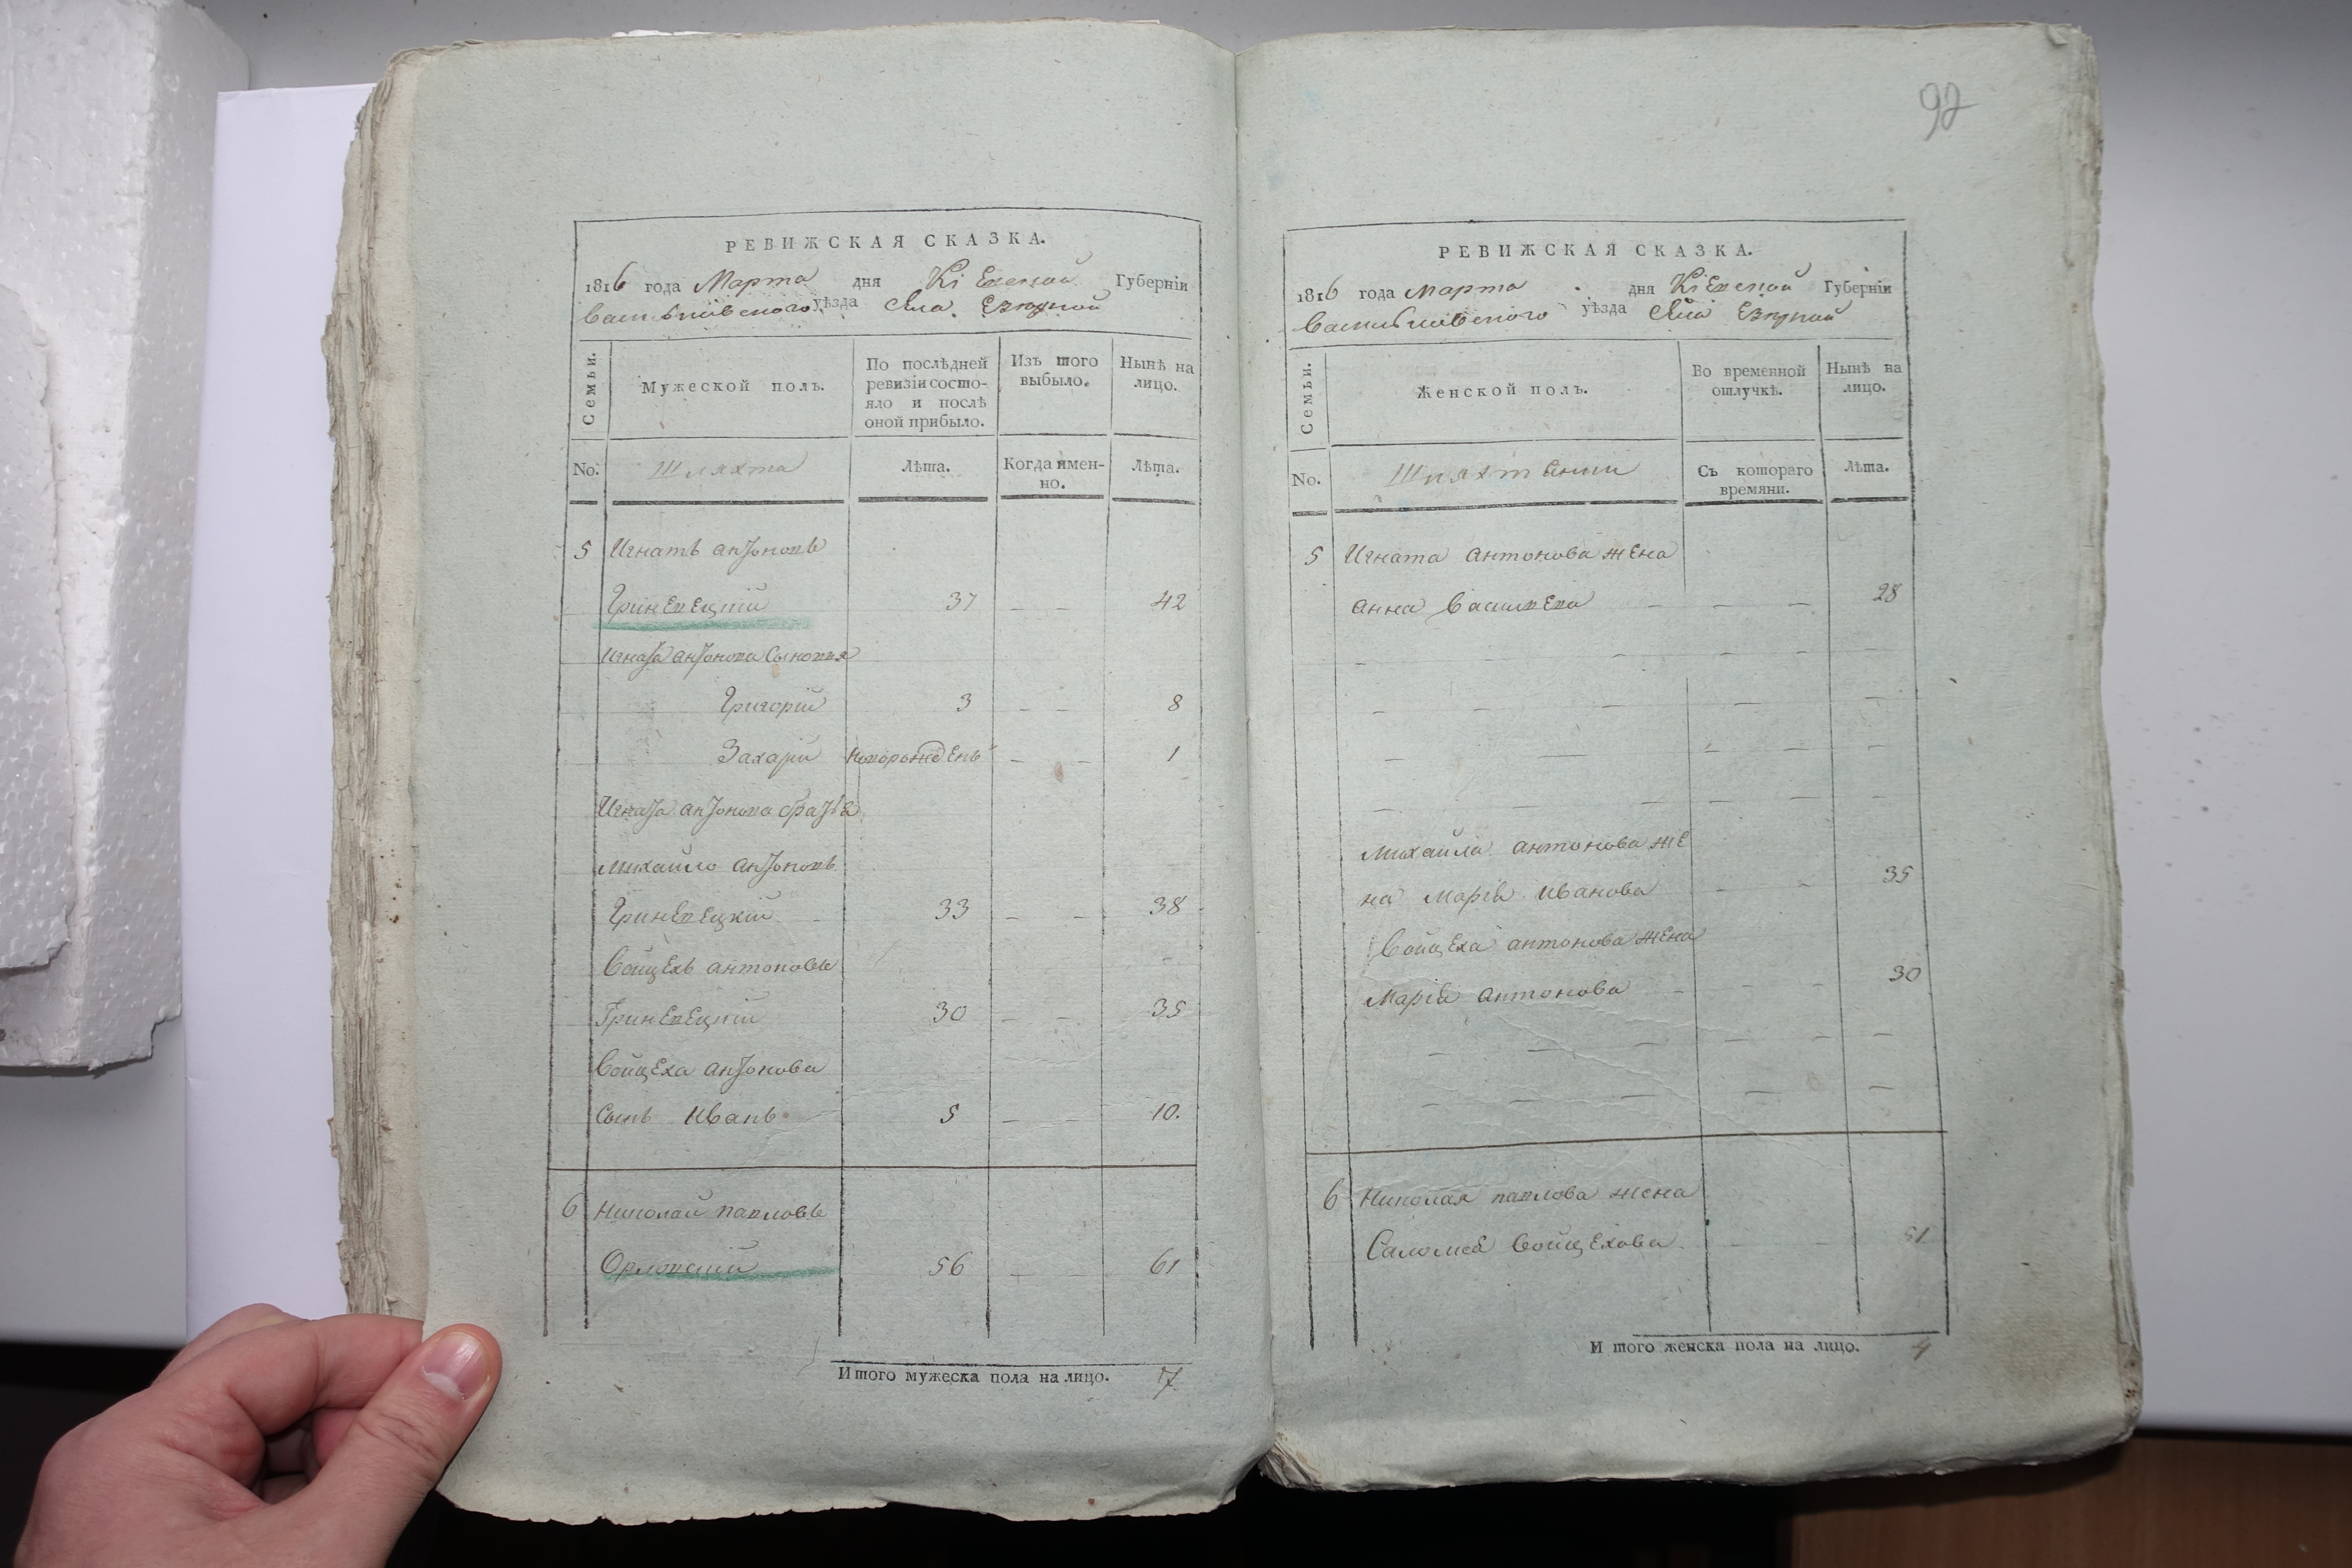 РЕВИЖСКАЯ СКАЗКА.
1816 года Марта дня Кіевской Губерніи
Васильковского уѣзда Села Езерной
Семьи.
Мужеской полъ.
По послѣдней ревизіи состояло и послѣ оной прибыло.
Изъ того выбыло.
Нынѣ на лицо.
No.
Шляхта
Лѣта.
Когда имен-
но.
Лѣта.
5 Игнатъ Антоновъ
Гриневецкій 37 — — 42
Игната Антонова Сыновья
Григорій 3 — — 8
Захарій новорожденъ — — 1
Игната Антонова братья
Михайло Антоновъ
Гриневецкій 33 — — 38
Войцехъ Антоновъ
Гриневецкій 30 — — 35
Войцеха Антонова
Сынъ Иванъ 5 — — 10.
6 Николай Павловъ
Орловскій 56 — — 61
Итого мужеска пола на лицо. 7
92
РЕВИЖСКАЯ СКАЗКА.
1816 года Марта дня Кіевской Губерніи
Васильковского уѣзда Езерной
Семьи.
Женской полъ.
Во временной
отлучкѣ.
Нынѣ на
лицо.
No.
Съ котораго
времяни.
Лѣта.
5 Игната Антонова жена
Анна — — — 28
Михайла Антонова же
на Марія Иванова — — 35
Войцеха Антонова жена
Марія Антонова — — — 30
6 Николая Павлова жена
Саломея Войцехова — — 51
Итого женска пола на лицо. 4